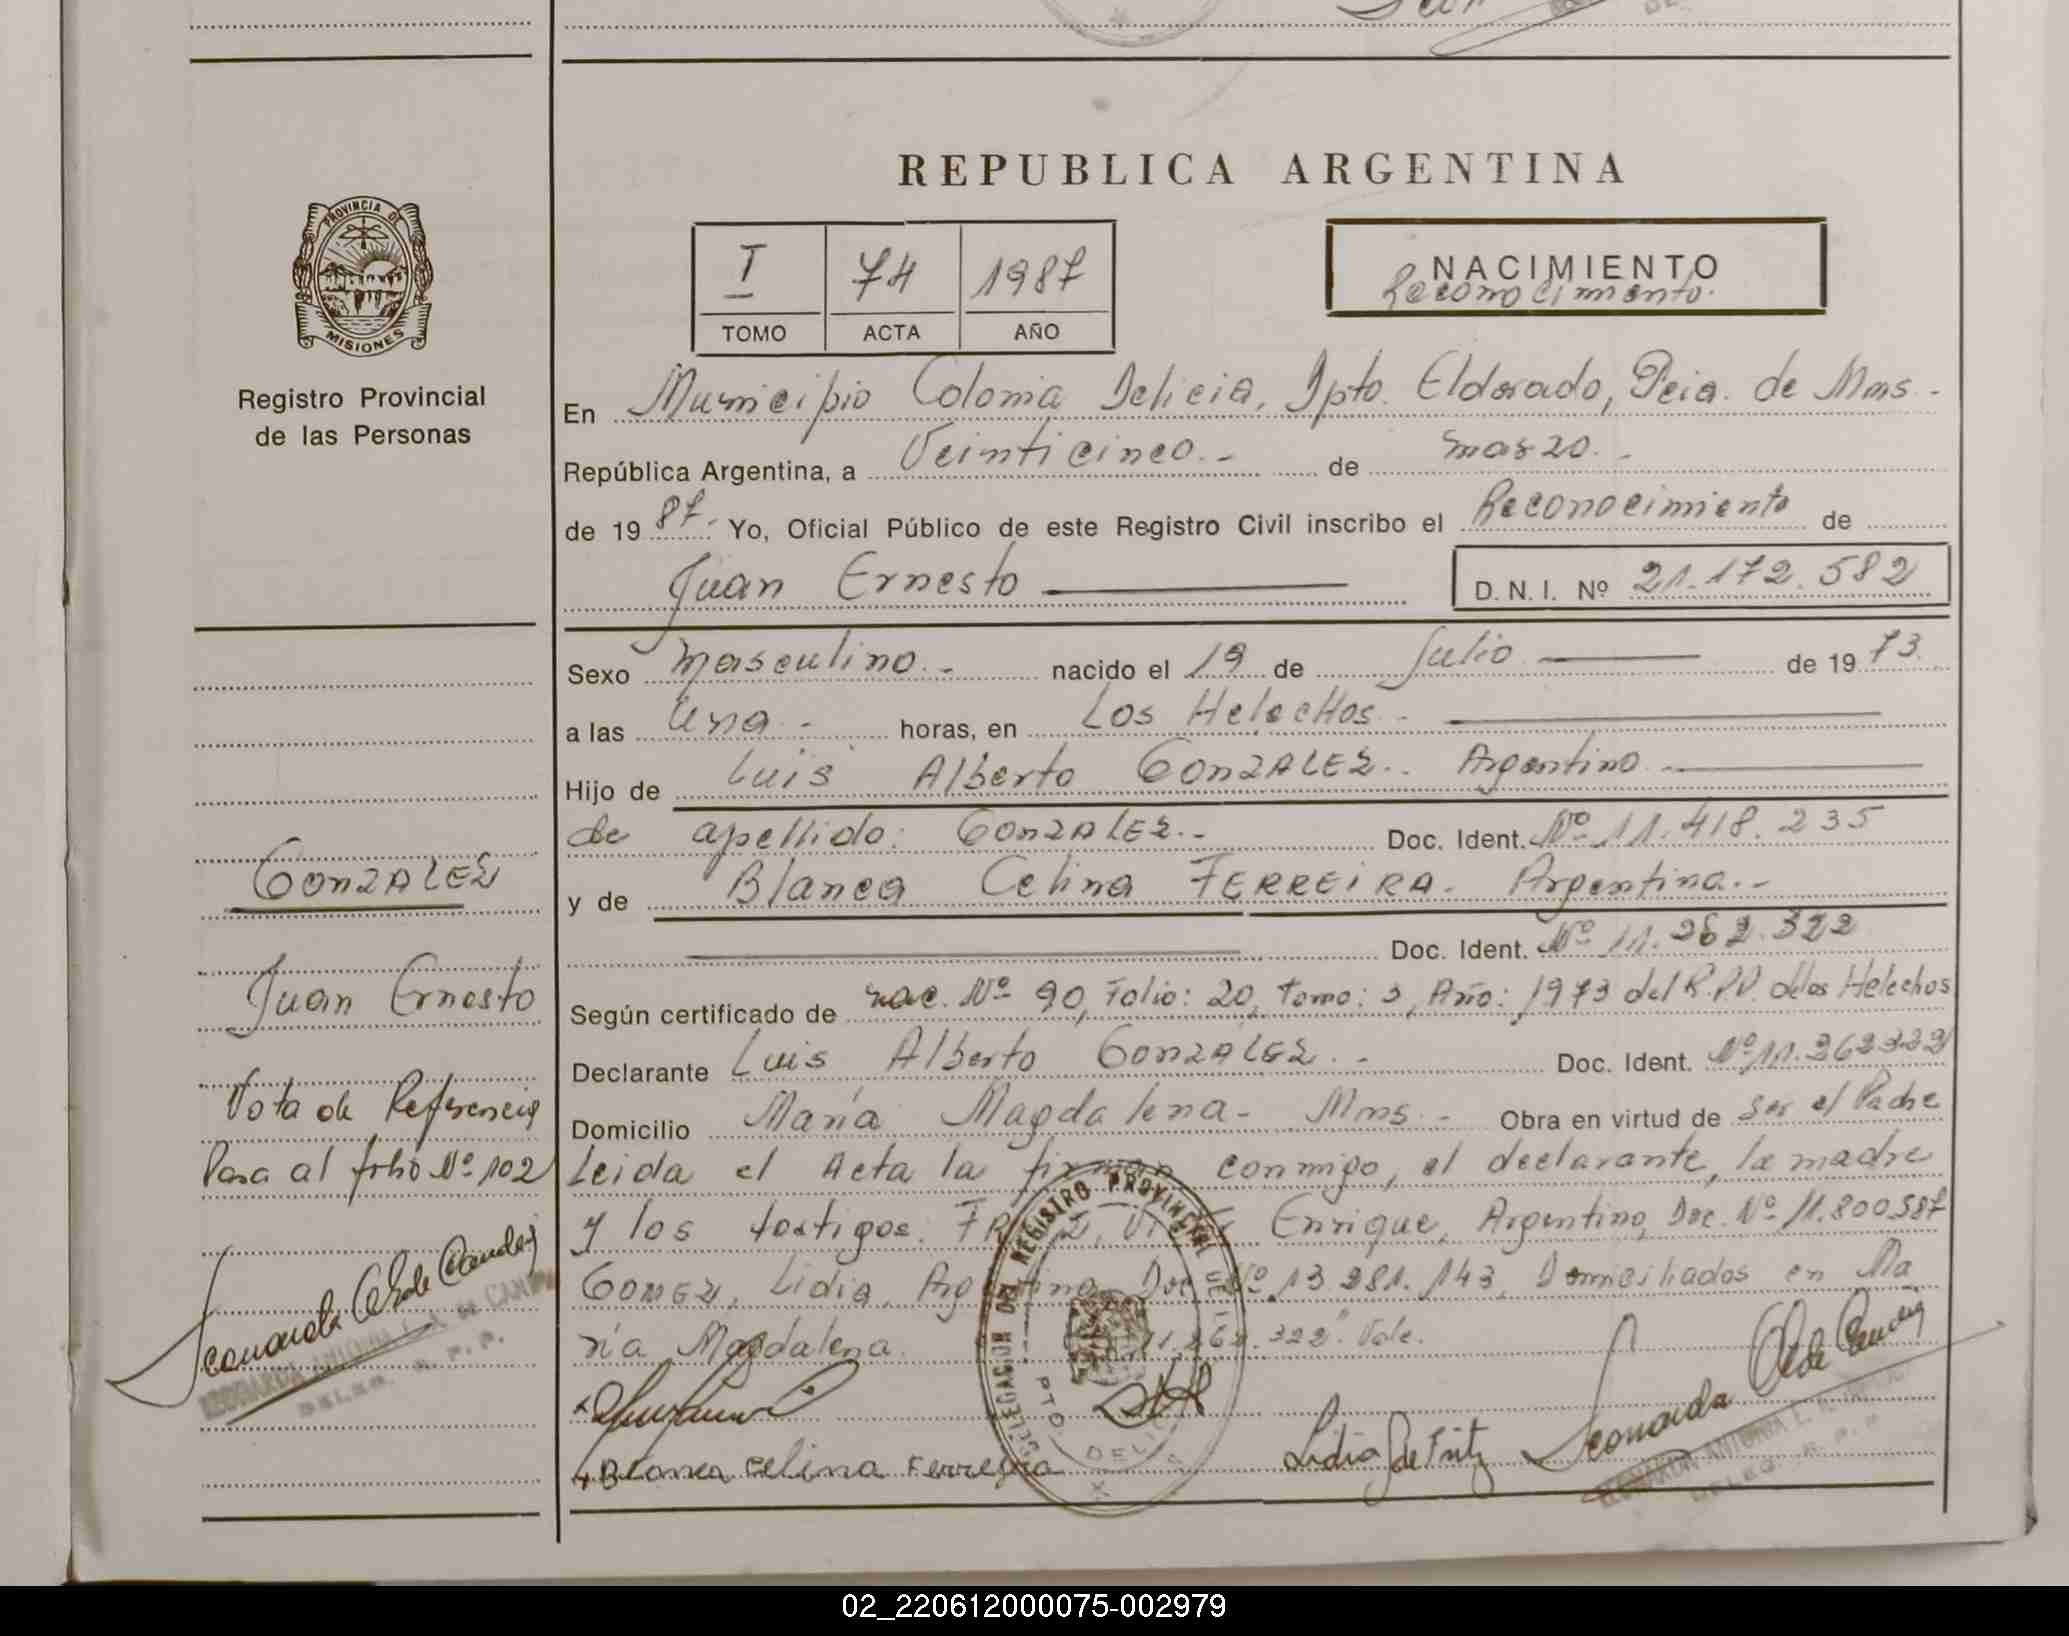 REPUBLICA ARGENTINA
PROVINCIA DE
MISIONES
Registro Provincial
de las Personas
I 74 1987
TOMO ACTA AÑO
NACIMIENTO
Reconocimiento.
En Municipio Colonia Delicia, Dpto. Eldorado, Pcia. de Mnes.-
República Argentina, a Veinticinco.- de marzo.-
de 1987. Yo, Oficial Público de este Registro Civil inscribo el Reconocimiento de
Juan Ernesto D. N. I. Nº 21.172.582
Sexo masculino.- nacido el 19 de Julio de 1973.
a las Una.- horas, en Los Helechos.-
Hijo de Luis Alberto GONZALEZ.. Argentino.-
de apellido: GONZALEZ.- Doc. Ident. Nº 11.418.235
y de Blanca Celina FERREIRA. Argentina.-
Doc. Ident. Nº 11.262.322
Según certificado de nac. Nº 90, Folio: 20, Tomo: 3, Año: 1973 del R.P.P. de los Helechos
Declarante Luis Alberto GONZALEZ.- Doc. Ident. Nº 11.262322
Domicilio María Magdalena- Mnes.- Obra en virtud de ser el Padre
Leida el Acta la firman conmigo, el declarante, la madre
y los testigos: Enrique, Argentino, Doc. Nº 11.800587
GOMEZ, Lidia, Argentina, Doc. Nº 13.281.143, Domiciliados en Ma
ría Magdalena. 11.262.322". Vale.
Blanca Celina Ferreyra
Lidia de Fritz
Leonarda
GONZALEZ
Juan Ernesto
Nota de Referencia
Pasa al folio Nº 102
Leonarda
DELEG. R. P. P.
DELEGACION DEL REGISTRO PROVINCIAL DE
PTO. DELICIA
02_220612000075-002979